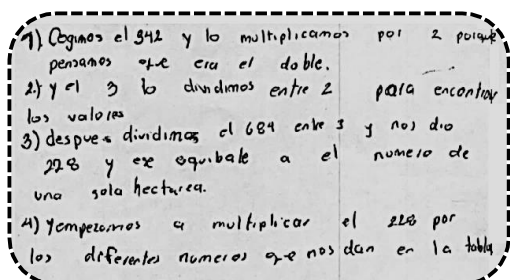 1) Cogimos el 342 y lo multiplicamos por 2 porque
pensamos que era el doble.
2) y el 3 lo dividimos entre 2 para encontrar
los valores
3) despues dividimos el 684 entre 3 y nos dio
228 y ese equibale a el numero de
una sola hectarea.
4) Yempezamos a multiplicar el 228 por
los diferentes numeros que nos dan en la tabla